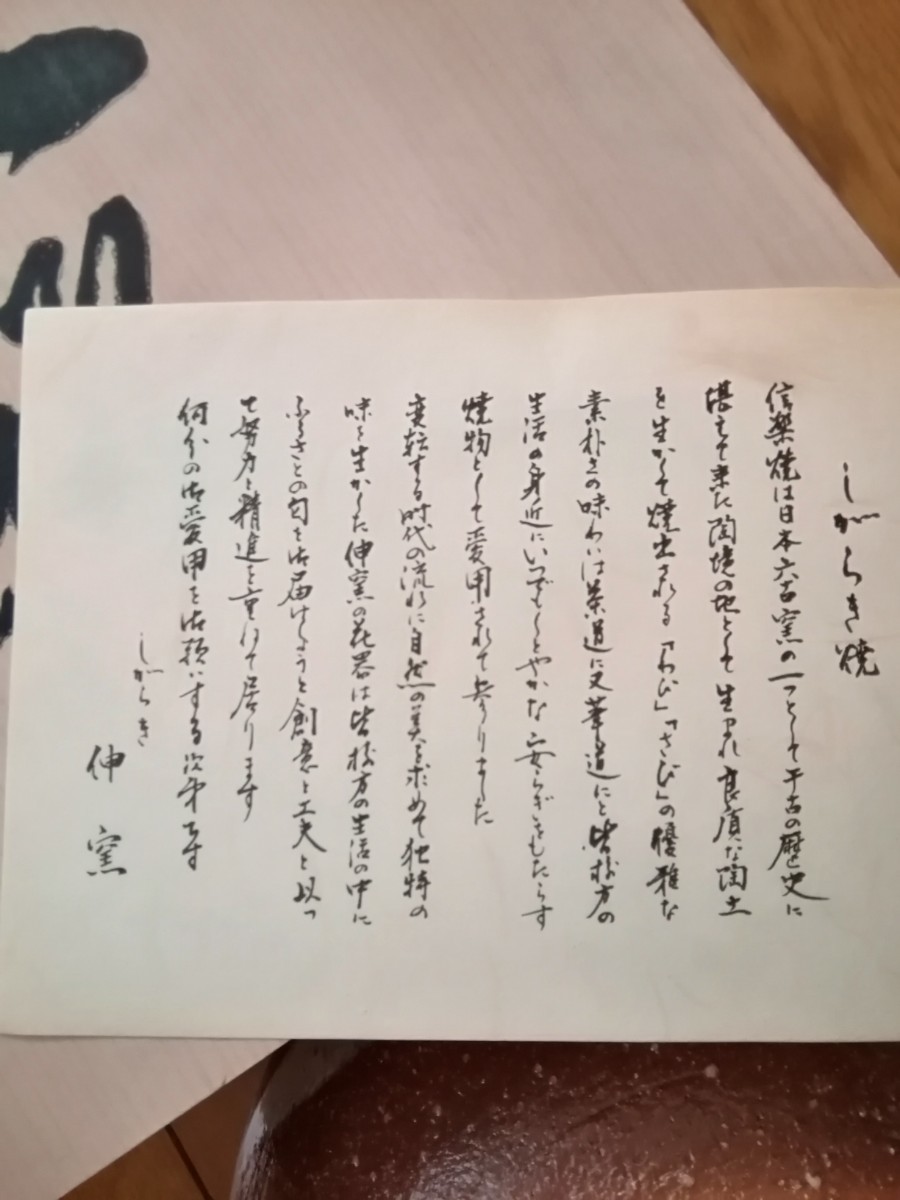 しがらき焼
信楽焼は日本六古窯の一つとして千古の歴史に
堪えて来た陶境の地として生れ良質な陶土
を生かして焼出される「わび」「さび」の優雅な
素朴さの味わいは茶道に又華道にと皆様方の
生活の身近にいつでもしとやかな安らぎをもたらす
焼物として愛用されて参りました
変転する時代の流れに自然の美を求めて独特の
味を生かした伸窯の花器は皆様方の生活の中に
ふるさとの匂を御届けしようと創意と工夫と以っ
て努力と精進を重ねて居ります
何分の御愛用を御願いする次第です
しがらき
伸窯